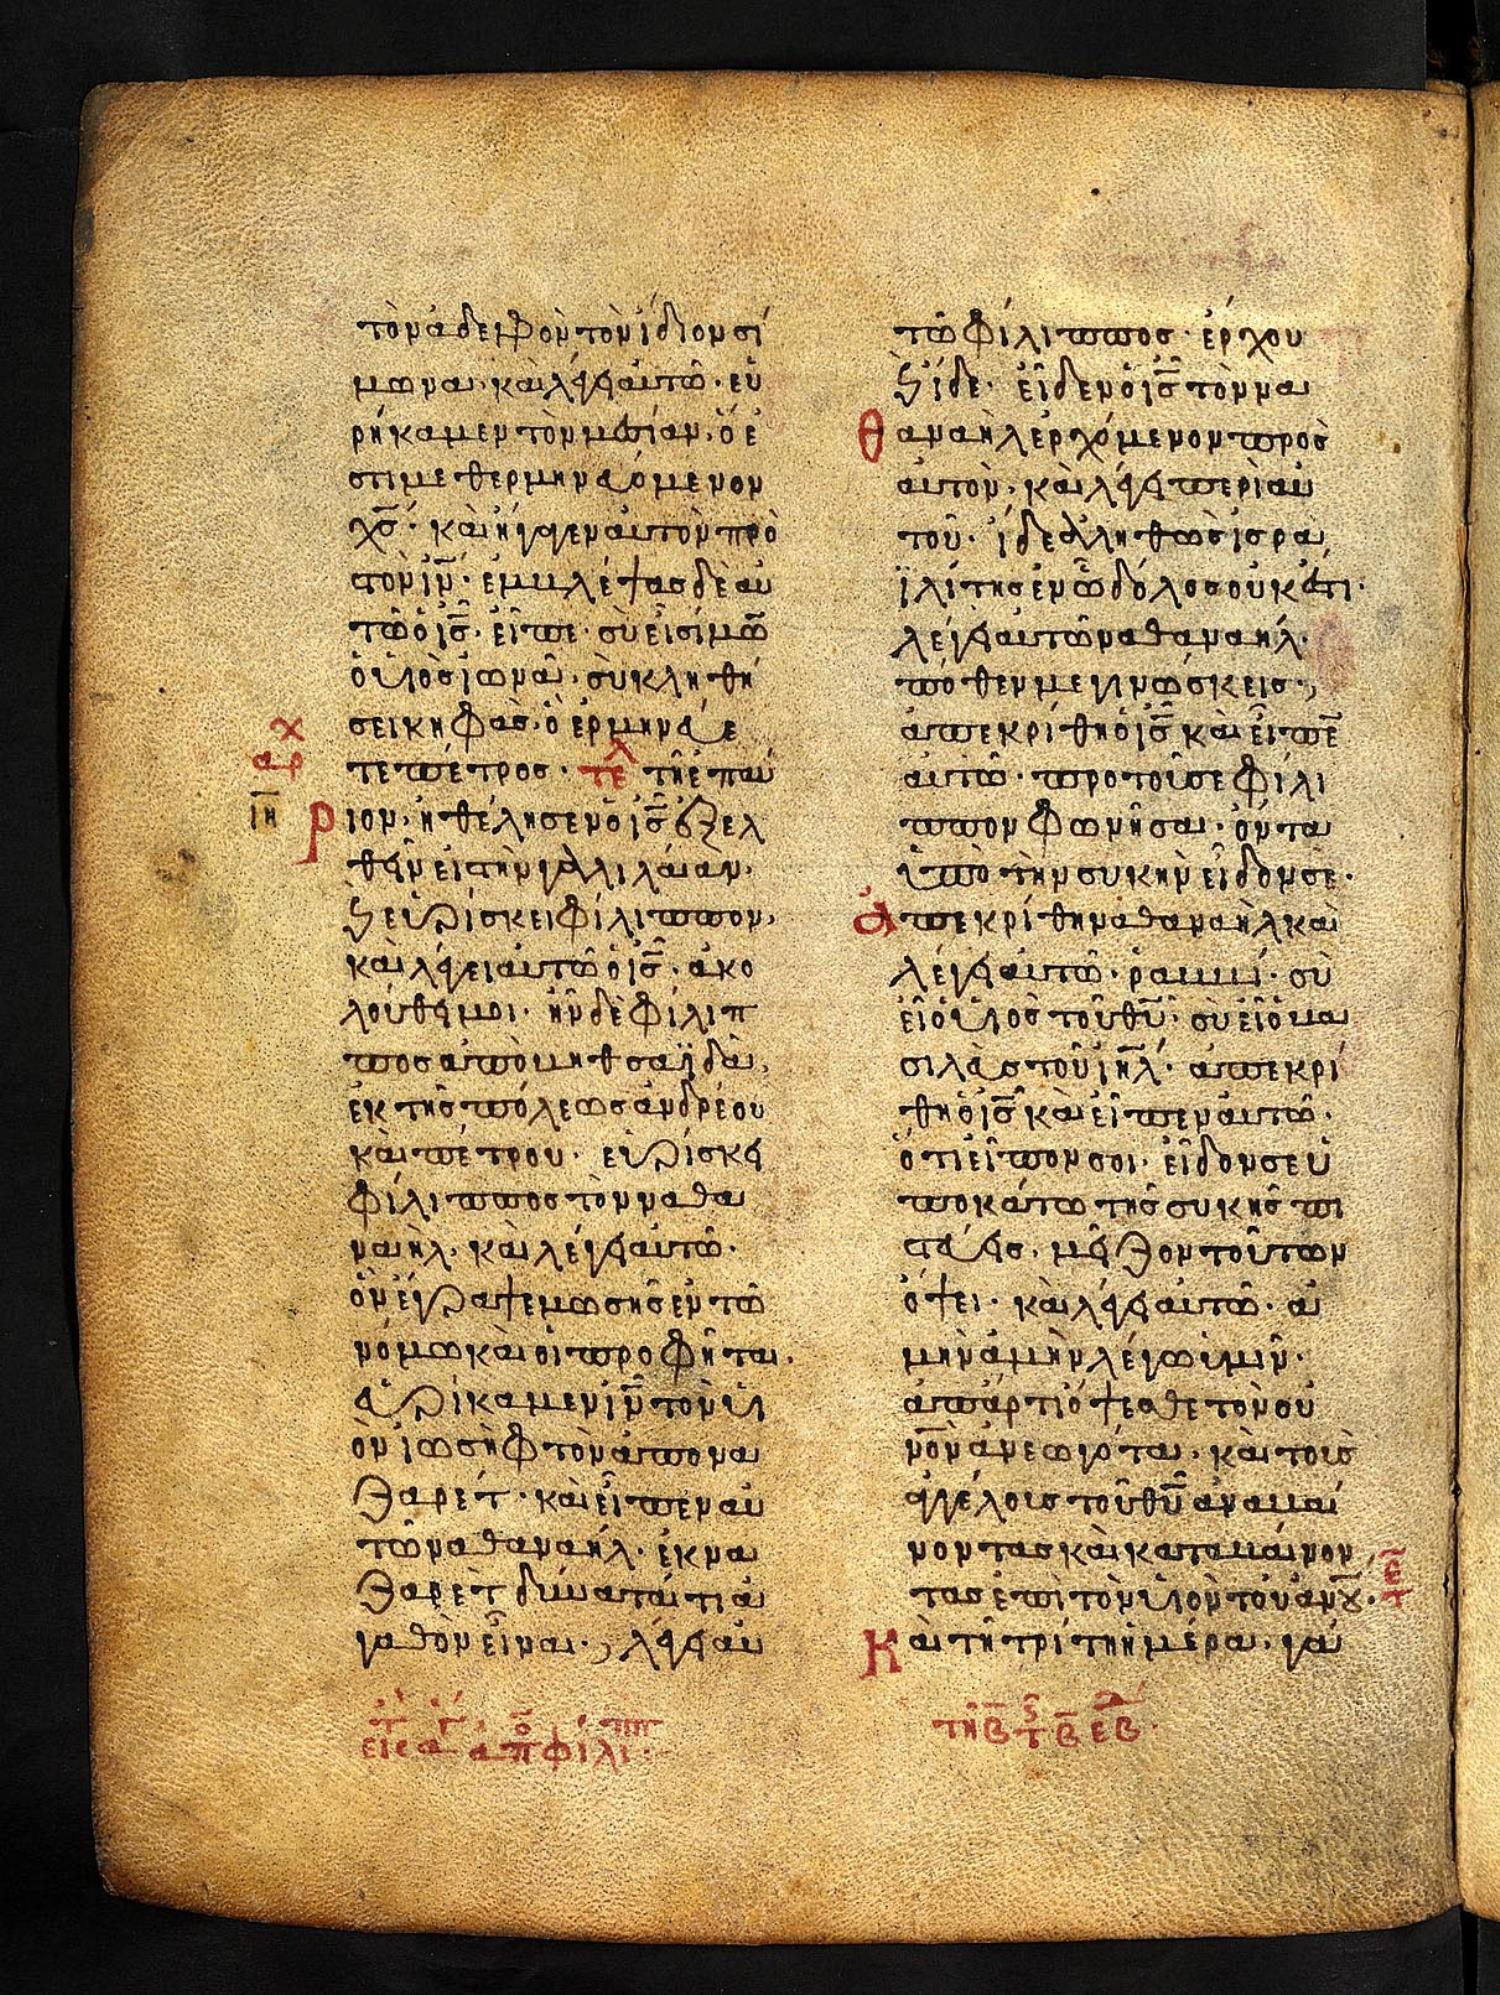 τὸν ἀδελφὸν τὸν ἴδιον σί
μωνα· καὶ λέγει αὐτῶ· εὑ
ρήκαμεν τὸν μεσίαν, ὅ ἐ
στι μεθερμηνευόμενον
χς̅· καὶ ἤγαγεν αὐτὸν πρὸ
ς τὸν ιν̅· ἐμβλέψας δὲ αὐ
τῶ ὁ ις̅· εἶπε· σὺ εἶ σίμων
ὁ υἱὸς ἰωνᾶ· σὺ κληθή
σει κηφᾶς· ὃ ἑρμηνεύε
αρχ
τε πέτρος· τελ τῆ ἐπαύ
ιη̅
ριον· ἠθέλησεν ὁ ις̅ ἐξελ
θεῖν εἰς τὴν γαλιλαίαν·
καὶ εὑρίσκει φίλιππον,
καὶ λέγει αὐτῶ ὁ ις̅· ἀκο
λούθει μοι· ἦν δὲ φίλιπ
πος ἀπὸ βηθσαϊδὰ,
ἐκ τῆς πόλεως ἀνδρέου
καὶ πέτρου· εὑρίσκει
φίλιππος τὸν ναθα
ναήλ· καὶ λέγει αὐτῶ·
ὃν ἔγραψε μωσῆς ἐν τῶ
νόμω καὶ οἱ προφῆται·
εὑρήκαμεν ιν̅ τὸν υἱ
ὸν ἰωσὴφ τὸν ἀπὸ να
ζαρέτ· καὶ εἶπεν αὐ
τῶ ναθαναήλ· ἐκ να
ζαρὲτ δύναταί τι ἀ
γαθὸν εἶναι·, λέγει αὐ
τῶ φίλιππος· ἔρχου
καὶ ἴδε· εἶδεν ὁ ις̅ τὸν να
θαναὴλ ἐρχόμενον πρὸς
αὐτὸν, καὶ λέγει περὶ αὐ
τοῦ· ἴδε ἀληθῶς ἰσρα
ηλίτης ἐν ὧ δόλος οὐκ ἔστι·
λέγει αὐτῶ ναθαναήλ·
πόθεν με γινώσκεις·,
ἀπεκρίθη ὁ ις̅ καὶ εἶπε
αὐτῶ· πρὸ τοῦ σε φίλι
ππον φωνῆσαι· ὄντα
ὑπὸ τὴν συκῆν εἶδόν σε·
ἀπεκρίθη ναθαναὴλ καὶ
λέγει αὐτῶ· ραββί· σὺ
εἶ ὁ υἱὸς τοῦ θυ̅· σὺ εἶ ὁ βα
σιλεὺς τοῦ ιηλ̅· ἀπεκρί
θη ὁ ις̅ καὶ εἶπεν αὐτῶ·
ὅτι εἶπόν σοι· εἶδόν σε ὑ
ποκάτω τῆς συκῆς πι
στεύεις· μείζον τούτων
ὄψει· καὶ λέγει αὐτῶ· ἀ
μὴν ἀμὴν λέγω ὑμῖν·
ἀπάρτι ὄψεσθε τὸν οὐ
νο̅ν ἀνεωγότα· καὶ τοὺς
ἀγγέλους τοῦ θυ̅ ἀναβαί
νοντας καὶ καταβαίνον
τας ἐπὶ τὸν υἱὸν τοῦ ανου̅·
Καὶ τῆ τρίτη ἡμέρα· γά